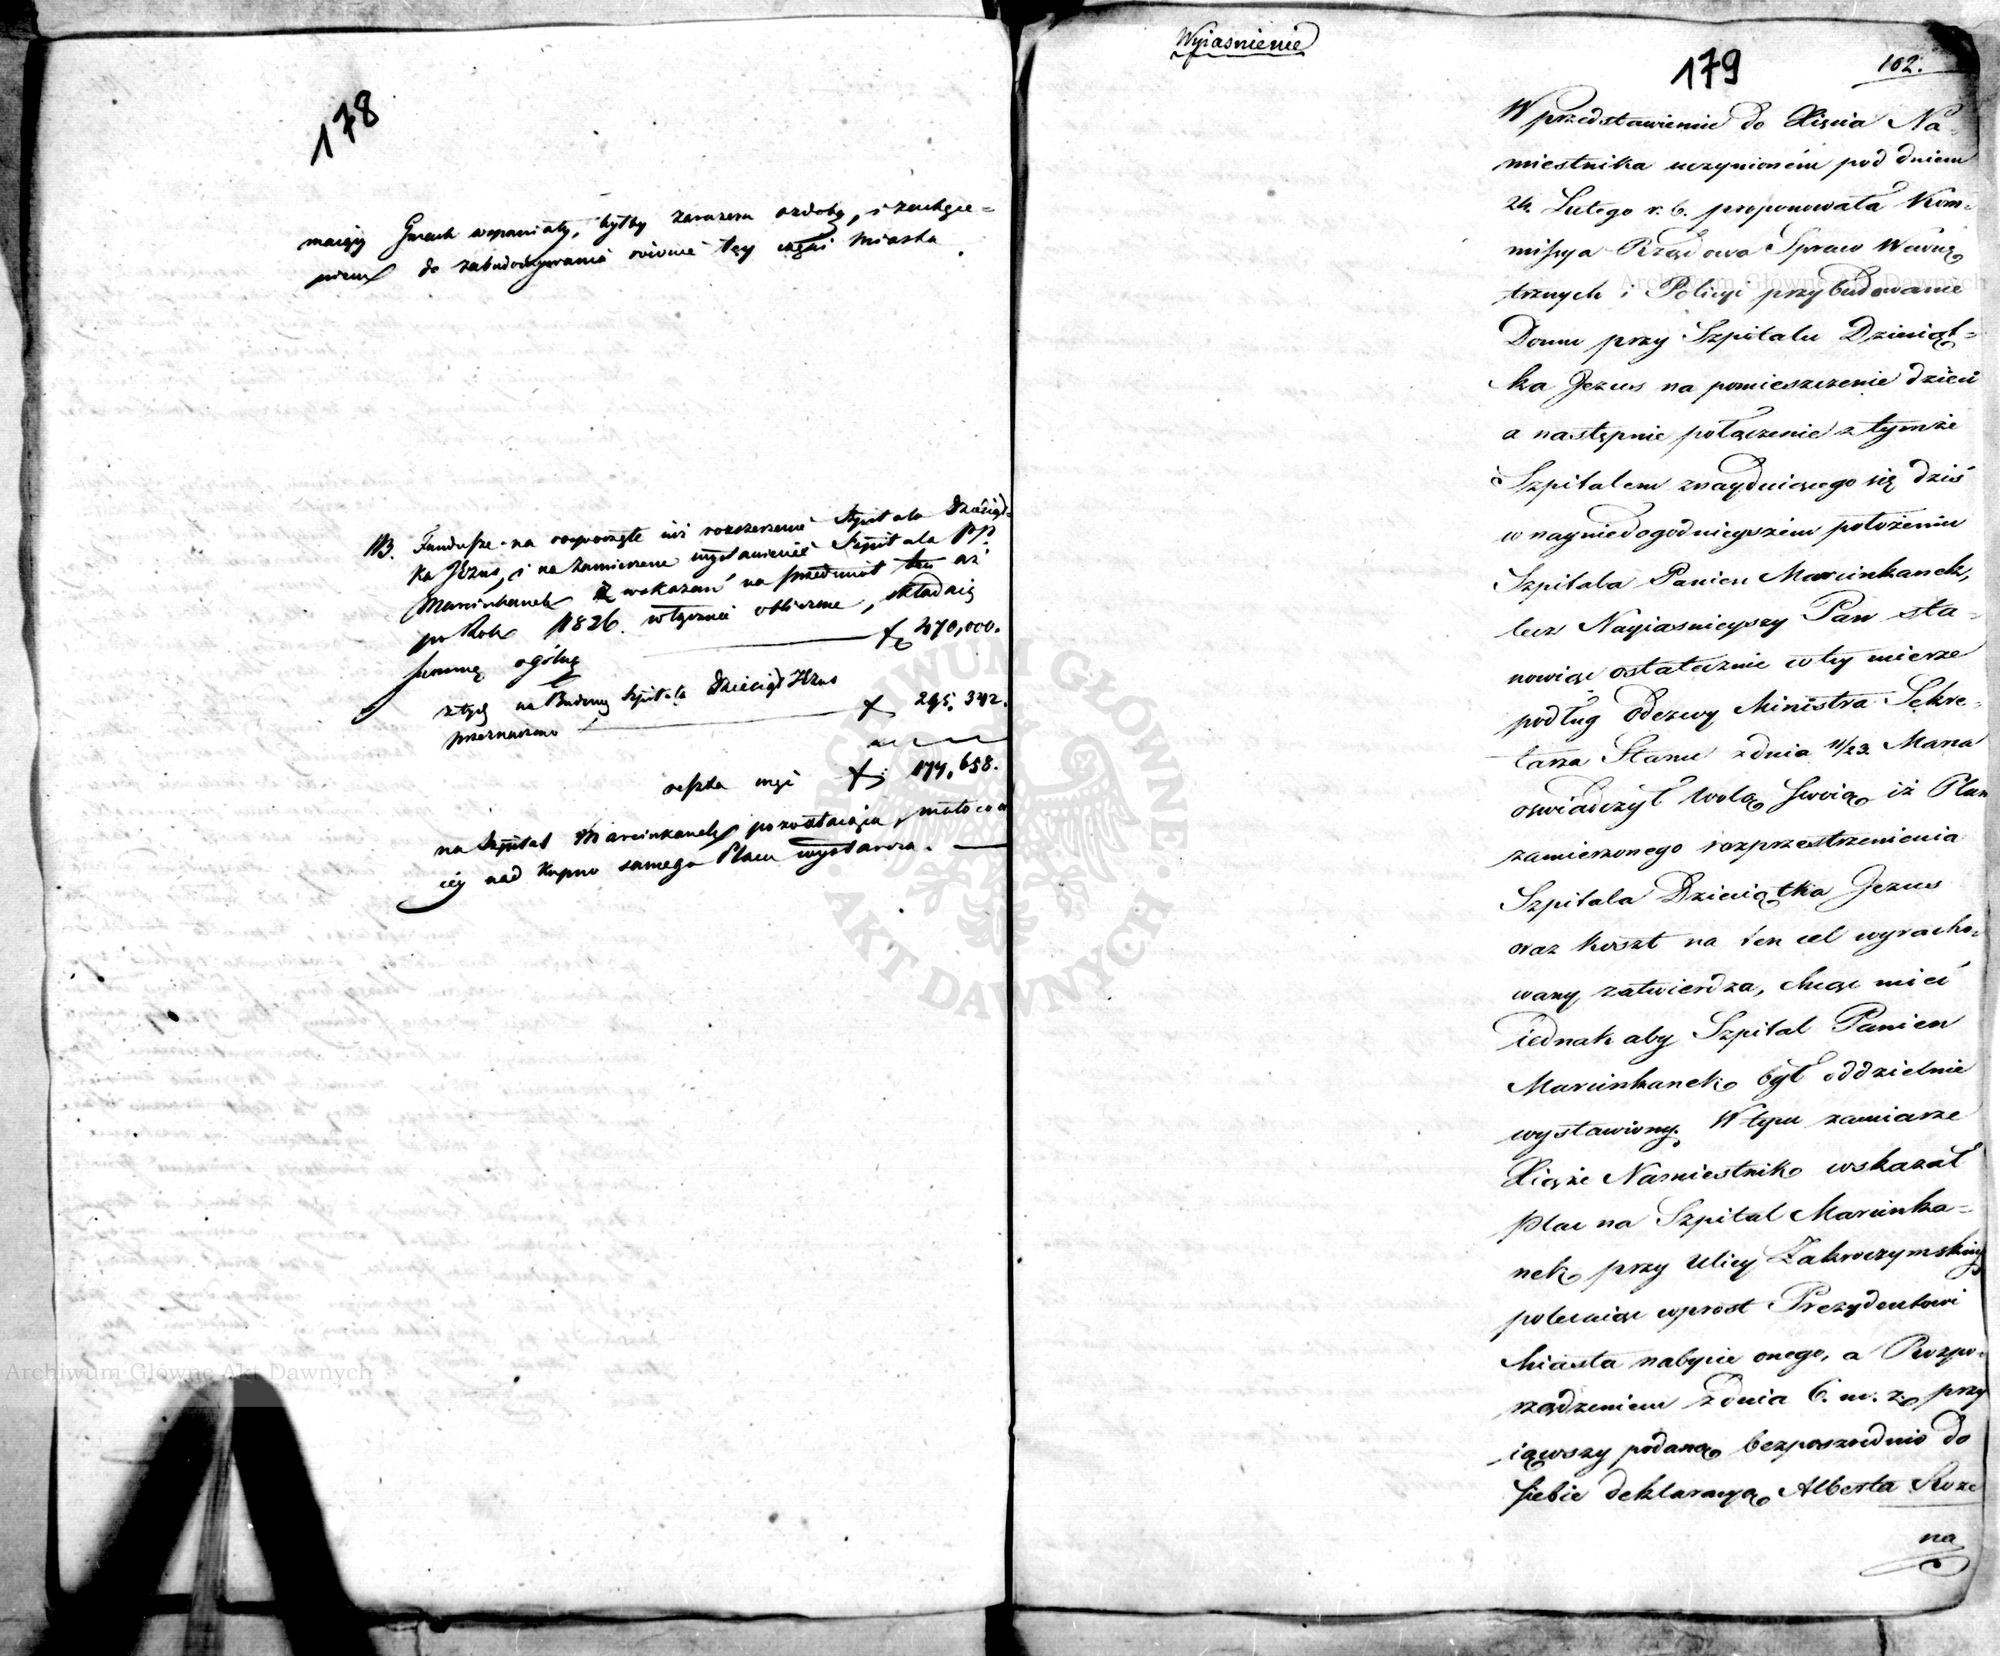 178
maiący Gmach wspaniały, byłby zarazem ozdobą, i zachęce-
niem do zabudowywania równie tey części Miasta.
NB. Fundusze na rozpoczęte już rozszerzenie Szpitala Dzieciąt-
ka Jezus, i na zamierzone wystawienie Szpitala PP.
Marcinkanek wskazań na przedmiot ten aż
po Rok 1826. włącznie obliczone, składaią
summę ogólną f 470,000.
z tych na Budowę Szpitala Dzieciąt. Jezus
przeznaczono f 295,342.
reszta więc f 174,658.
na Szpital Marcinkanek pozostaiąca, mało co w
cey nad kupno samego Placu wystarcza. —
Wyiasnienie
179
102.
W przedstawienie do Xięcia Na-
miestnika uczynioném pod dniem
24. Lutego r. b. proponowała Kom-
missya Rządowa Spraw Wewnę
trznych i Policyi przybudowanie
Domu przy Szpitalu Dzieciąt-
ka Jezus na pomieszczenie dzieci
a następnie połączenie z tymże
Szpitalem znayduiącego się dziś
w nayniedogodnieyszém położeniu
Szpitala Panien Marcinkanek,
lecz Nayiasnieyszy Pan sta-
nowiąc ostatecznie w tey mierze
podług Odezwy Ministra Sekre-
tarza Stanu z dnia 11/23. Marca
oswiadczył Wolą swoią iż Plan
zamierzonego rozprzestrzenienia
Szpitala Dzieciątka Jezus
oraz koszt na ten cel wyracho-
wany zatwierdza, chcąc mieć
iednak aby Szpital Panien
Marcinkanek był oddzielnie
wystawiony. W tym zamiarze
Xiąże Namiestnik wskazał
Plac na Szpital Marcinka-
nek przy Ulicy Zakroczymskiey
polecaiąc wprost Prezydentowi
Miasta nabycie onego, a Rozpo-
rządzeniem z dnia 6. m. z. przy
iąwszy podaną bezposrednio do
siebie deklaracyą Alberta Roze
na